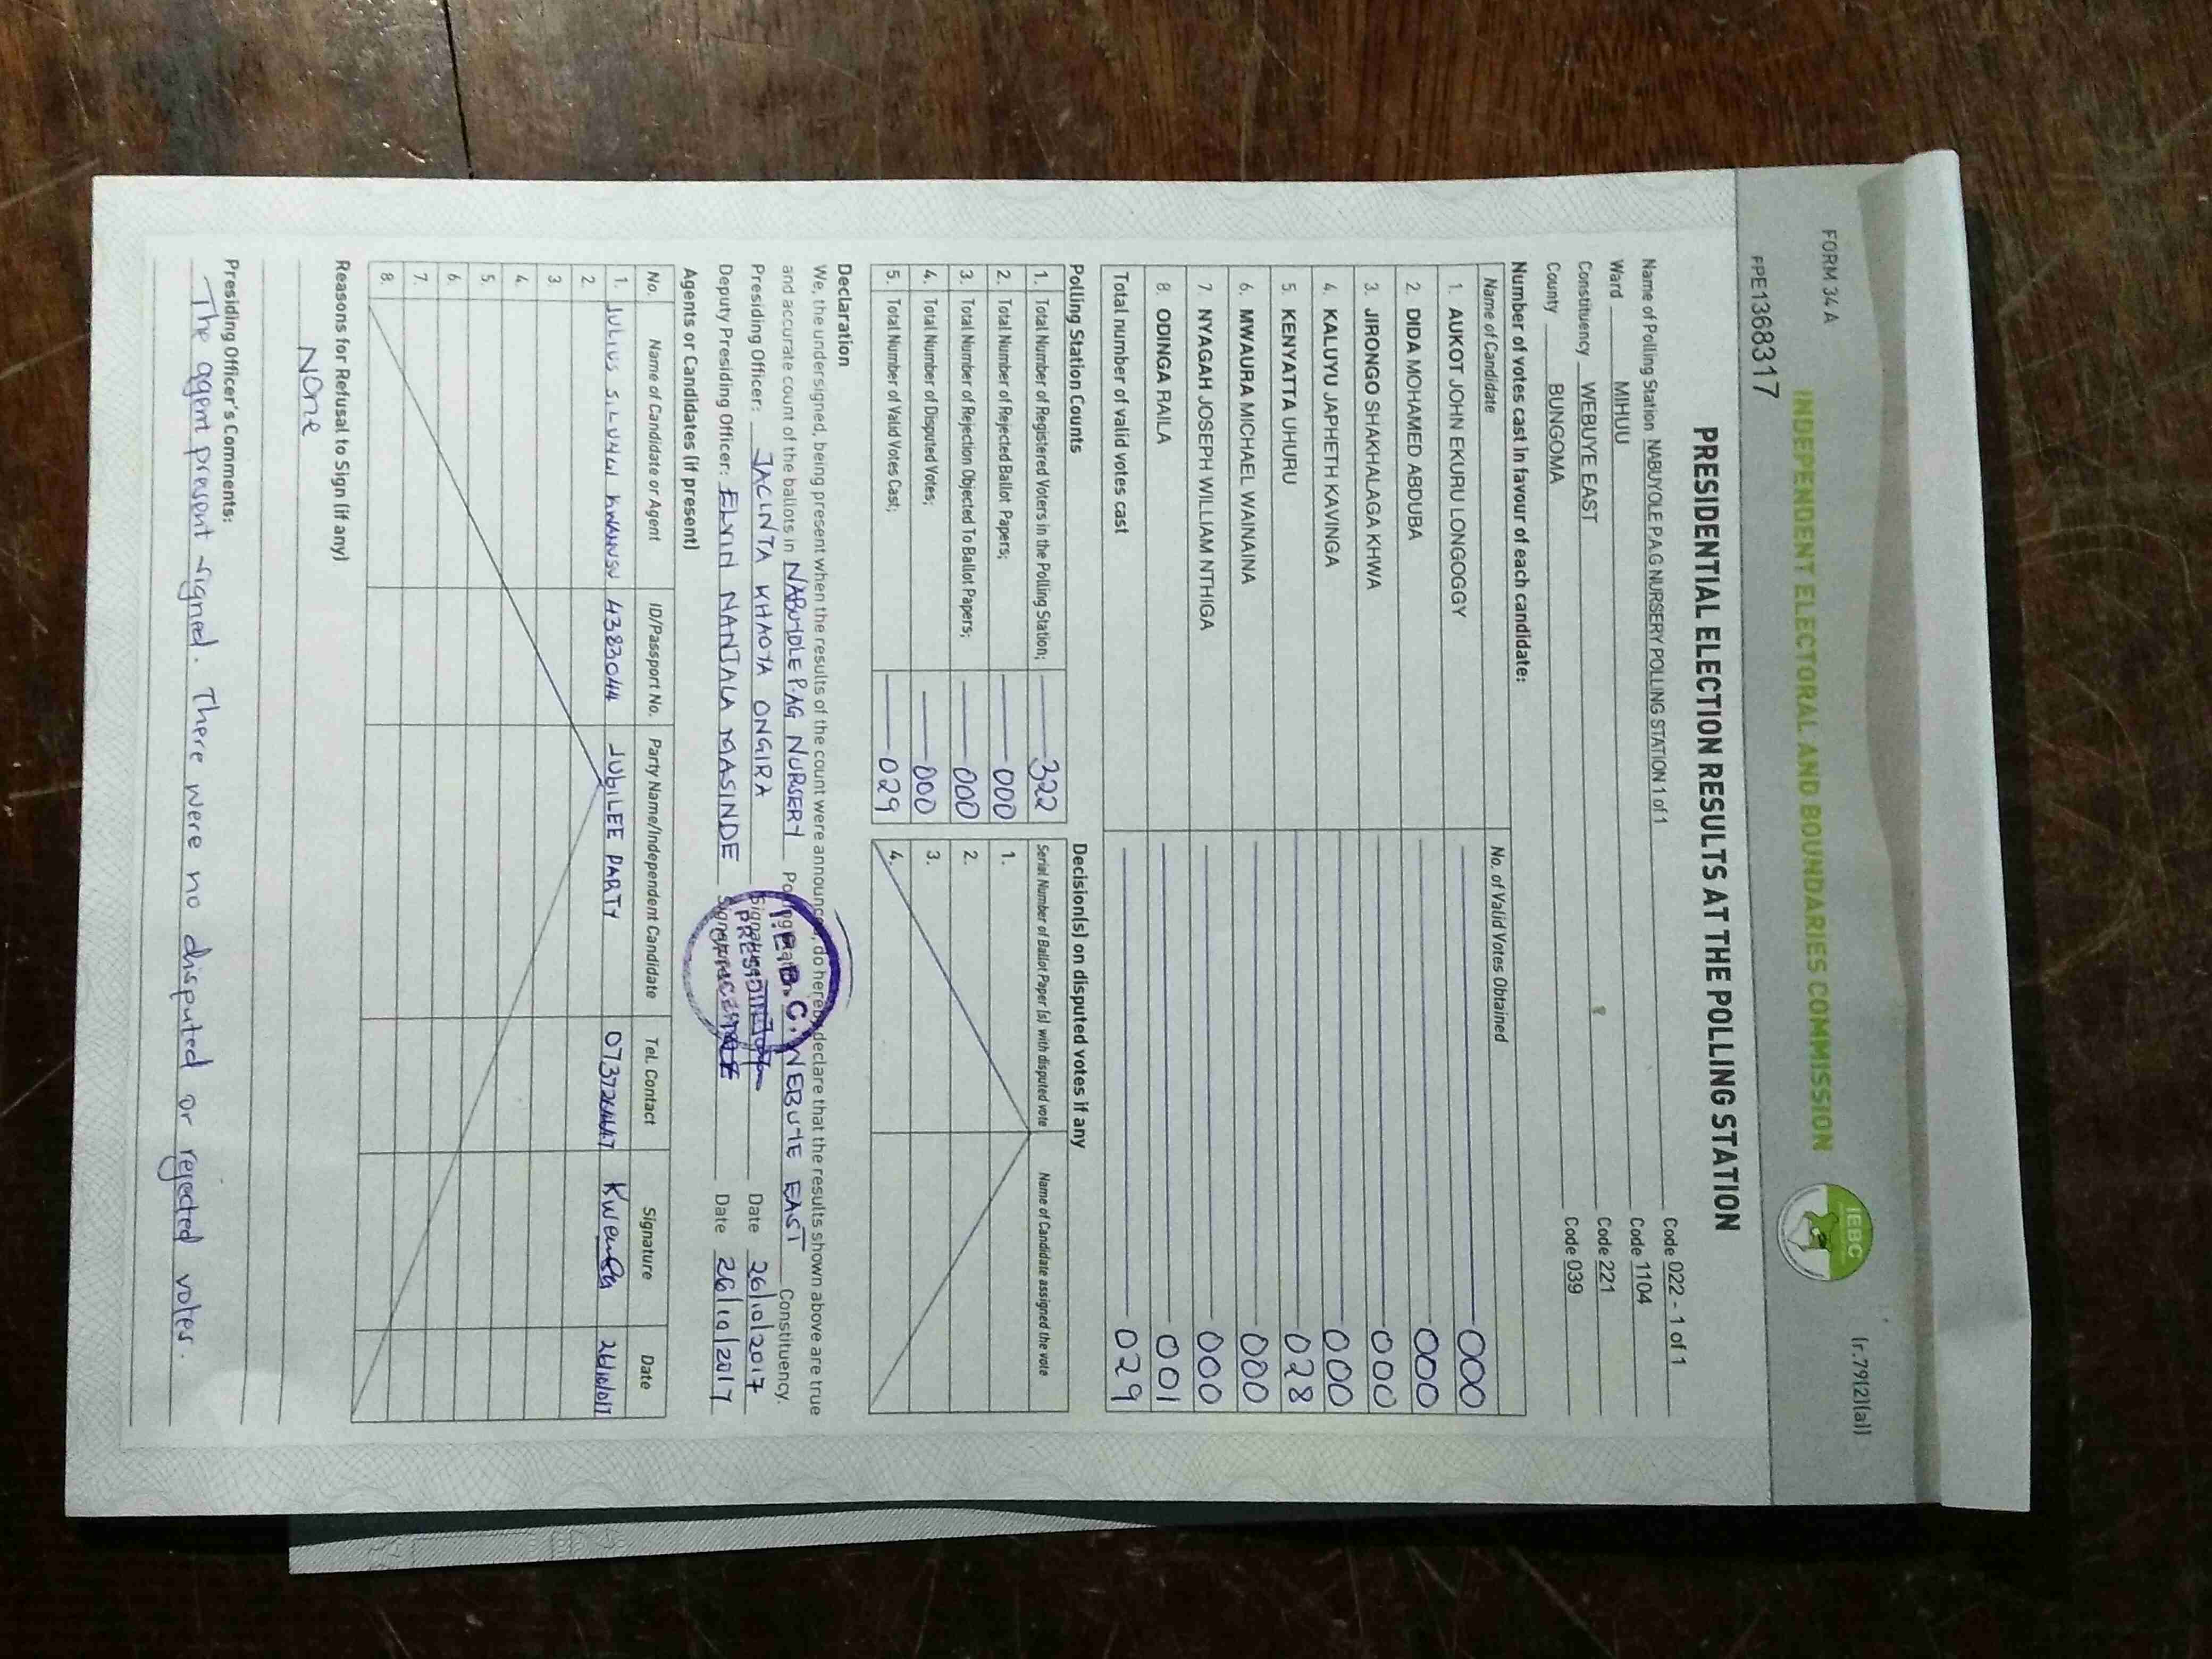 FORM 34 A
(r.79(2)(a))
INDEPENDENT ELECTORAL AND BOUNDARIES COMMISSION
IEBC
FPE1368317
PRESIDENTIAL ELECTION RESULTS AT THE POLLING STATION
Name of Polling Station NABUYOLE P.A.G NURSERY POLLING STATION 1 of 1 Code 022 - 1 of 1
Ward MIHUU Code 1104
Constituency WEBUYE EAST Code 221
County BUNGOMA Code 039
Number of votes cast in favour of each candidate:
Name of Candidate No. of Valid Votes Obtained
1. AUKOT JOHN EKURU LONGOGGY 000
2. DIDA MOHAMED ABDUBA 000
3. JIRONGO SHAKHALAGA KHWA 000
4. KALUYU JAPHETH KAVINGA 000
5. KENYATTA UHURU 028
6. MWAURA MICHAEL WAINAINA 000
7. NYAGAH JOSEPH WILLIAM NTHIGA 000
8. ODINGA RAILA 001
Total number of valid votes cast 029
Polling Station Counts
1. Total Number of Registered Voters in the Polling Station; 322
2. Total Number of Rejected Ballot Papers; 000
3. Total Number of Rejection Objected To Ballot Papers; 000
4. Total Number of Disputed Votes; 000
5. Total Number of Valid Votes Cast; 029
Decision(s) on disputed votes if any
Serial Number of Ballot Paper (s) with disputed vote Name of Candidate assigned the vote
1.
2.
3.
4.
Declaration
We, the undersigned, being present when the results of the count were announced, do hereby declare that the results shown above are true
and accurate count of the ballots in NABUYOLE P.AG NURSERY Polling Station WEBUYE EAST Constituency.
Presiding Officer: JACINTA KHAOYA ONGIRA Signature Date 26/10/2017
Deputy Presiding Officer: ELVIN NANJALA MASINDE Signature Date 26/10/2017
I.E.B.C.
Agents or Candidates (if present)
No. Name of Candidate or Agent ID/Passport No. Party Name/Independent Candidate Tel. Contact Signature Date
1. JULIUS 43883044 JUBILEE PARTY
2.
3.
4.
5.
6.
7.
8.
Reasons for Refusal to Sign (if any)
None
Presiding Officer's Comments:
The agent present signed. There were no disputed or rejected votes.